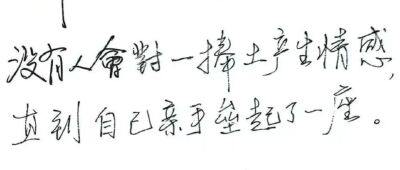 没有人會對一捧土产生情感，
直到自己亲手垒起了一座。